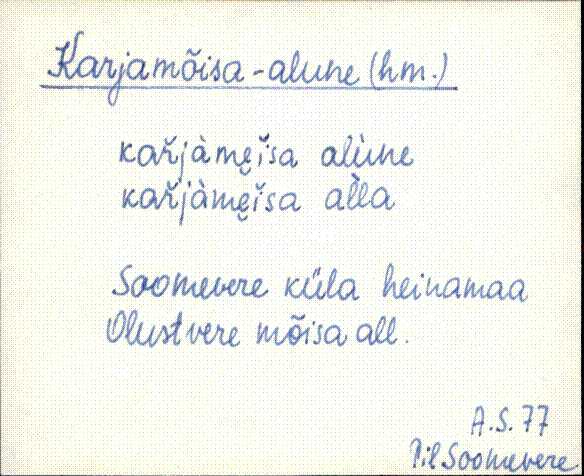 Karjamõisa-alune (hm.)
kař̀jàmę̆ĭsa alùne
kař̀jàmę̆ĭsa al̀la
Soomevere küla heinamaa
Olustvere mõisa all.
A.S. 77
Pil Soomevere